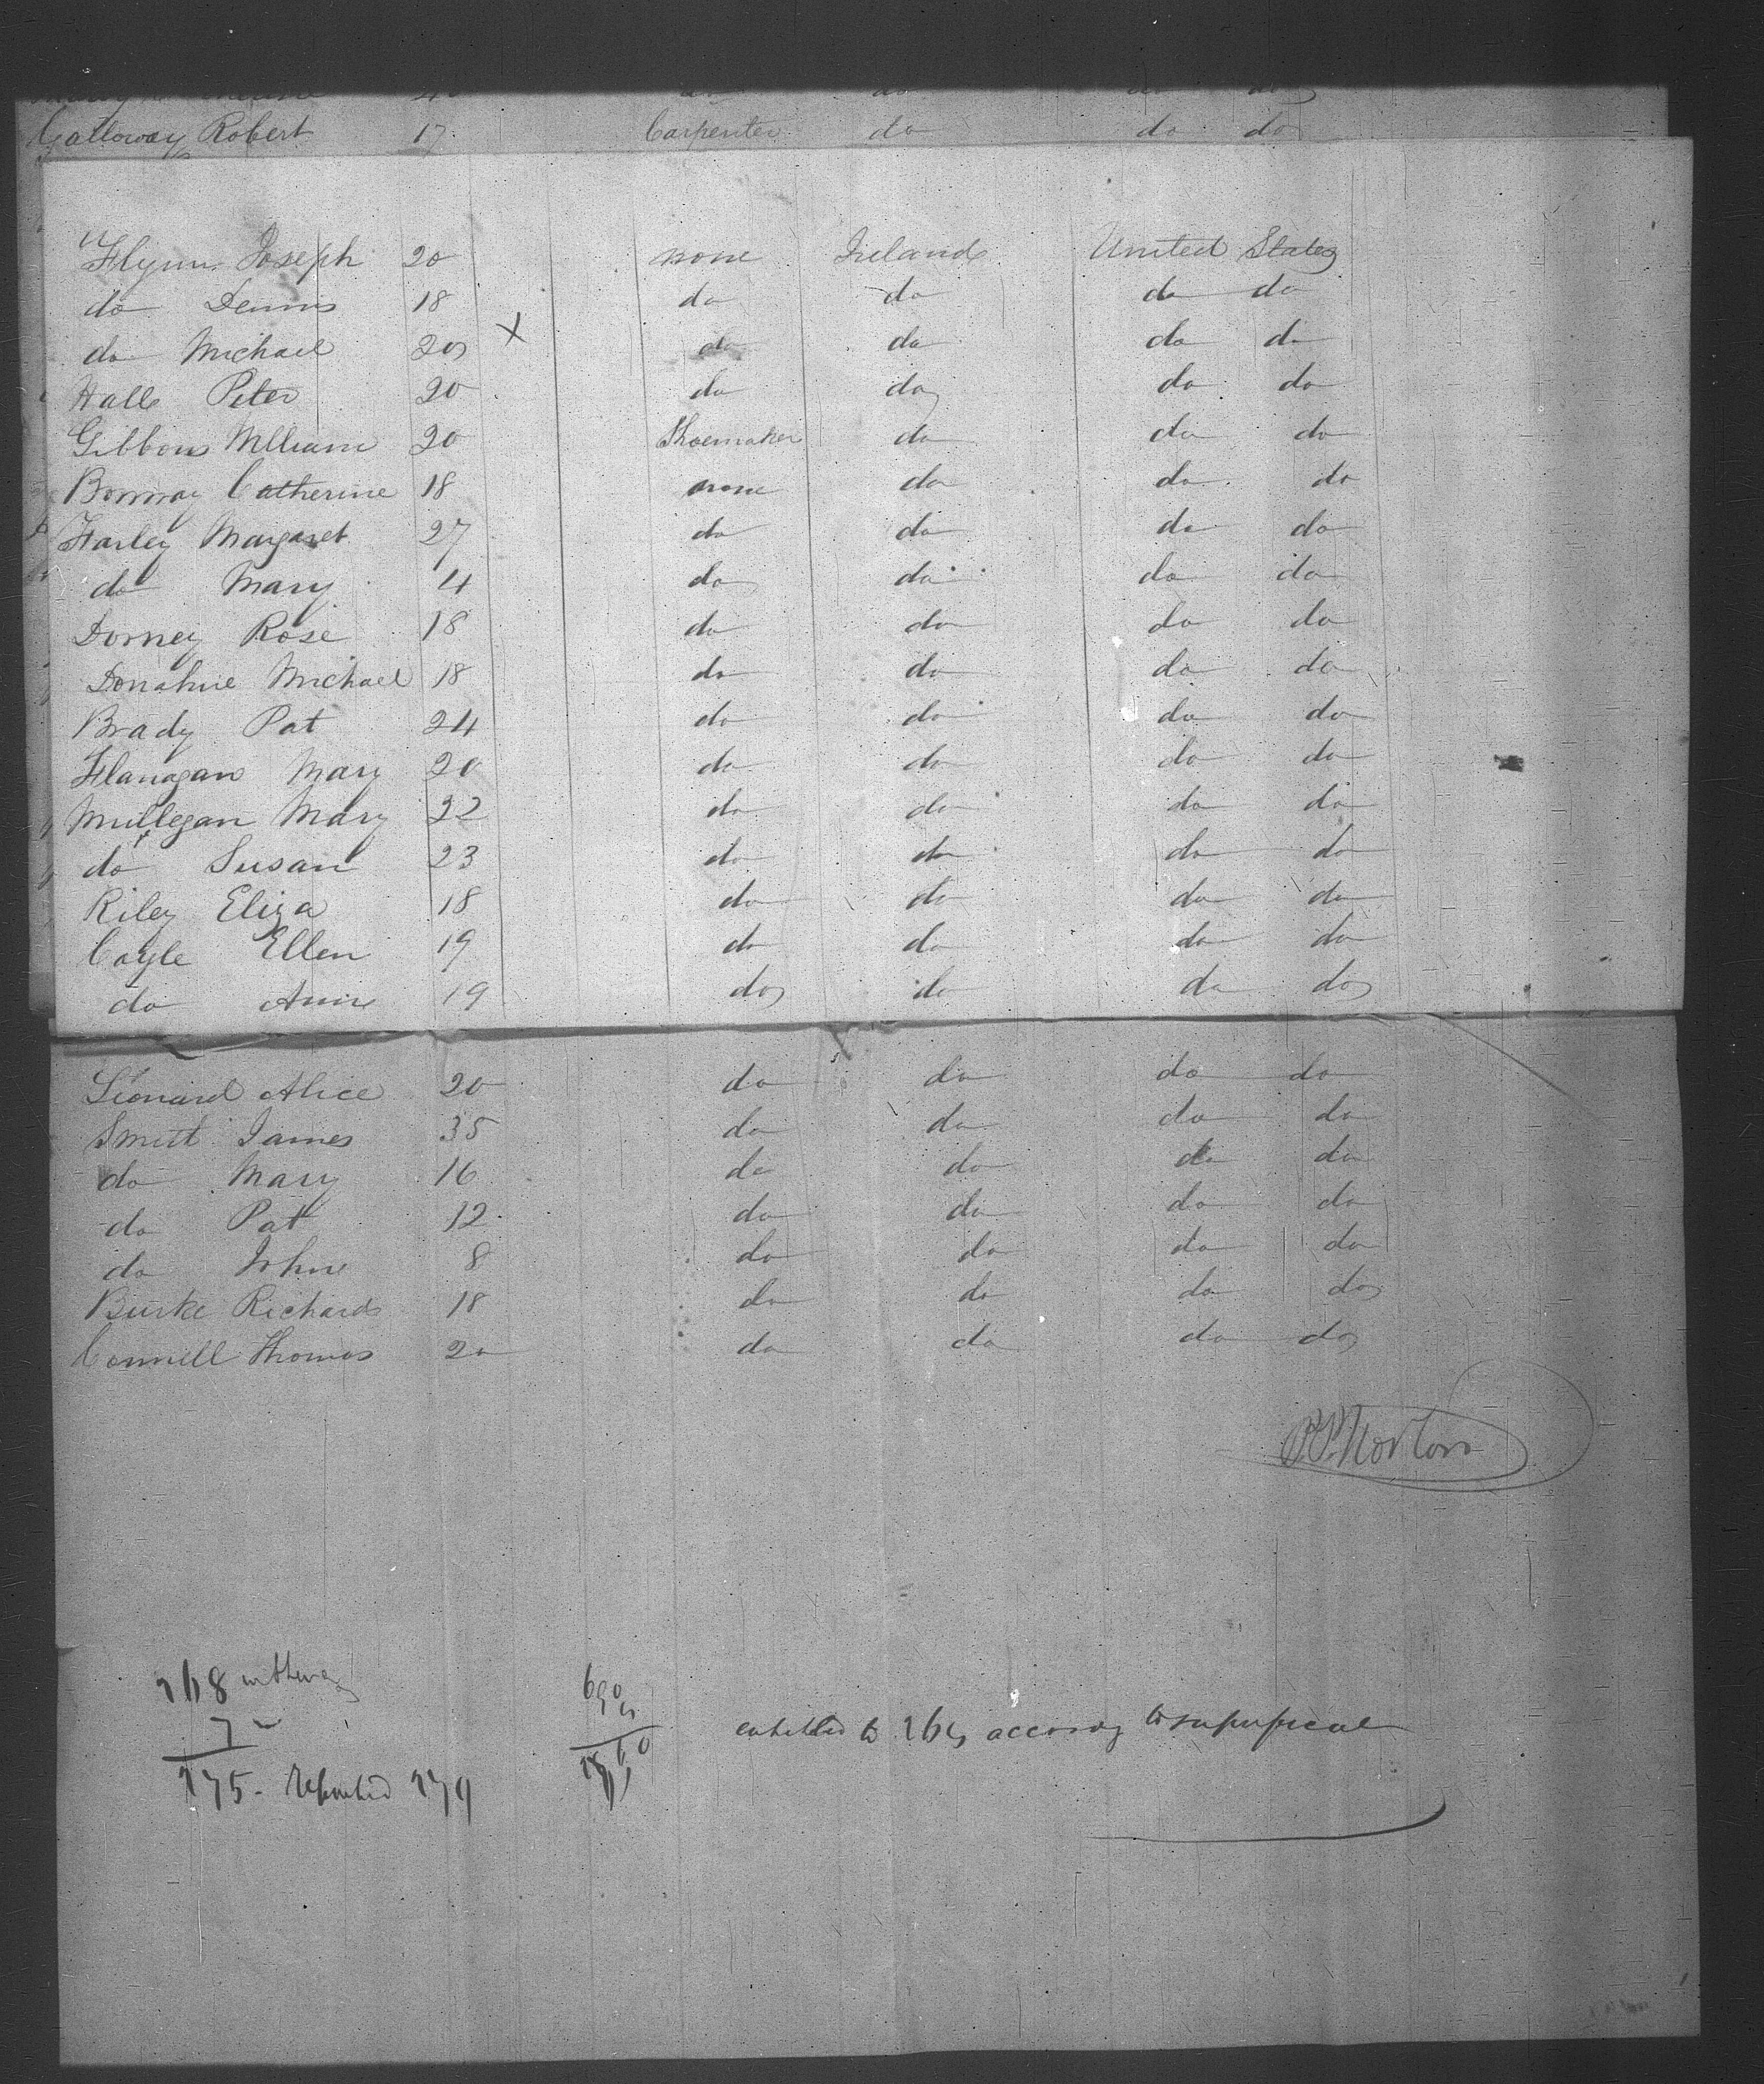 Galloway Robert 17 Carpenter do do do
Flynn Joseph 20 none Ireland United States
do Dennis 18 do do do do
do Michael 20 X do do do do
Hall Peter 20 do do do do
Gibbons William 20 Shoemaker do do do
Catherine 18 none do do do
Farley Margaret 27 do do do do
do Mary 4 do do do do
Dorney Rose 18 do do do do
Donahue Michael 18 do do do do
Brady Pat 24 do do do do
Flanagan Mary 20 do do do do
Mullegan Mary 22 do do do do
do Susan 23 do do do do
Riley Eliza 18 do do do do
Coyle Ellen 19 do do do do
do Anne 19 do do do do
Leonard Alice 20 do do do do
Smith James 35 do do do do
do Mary 16 do do do do
do Pat 12 do do do do
do John 8 do do do do
Burke Richard 18 do do do do
Connell Thomas 20 do do do do
Norton
268
7
275 - Reported 279
to according to superficial